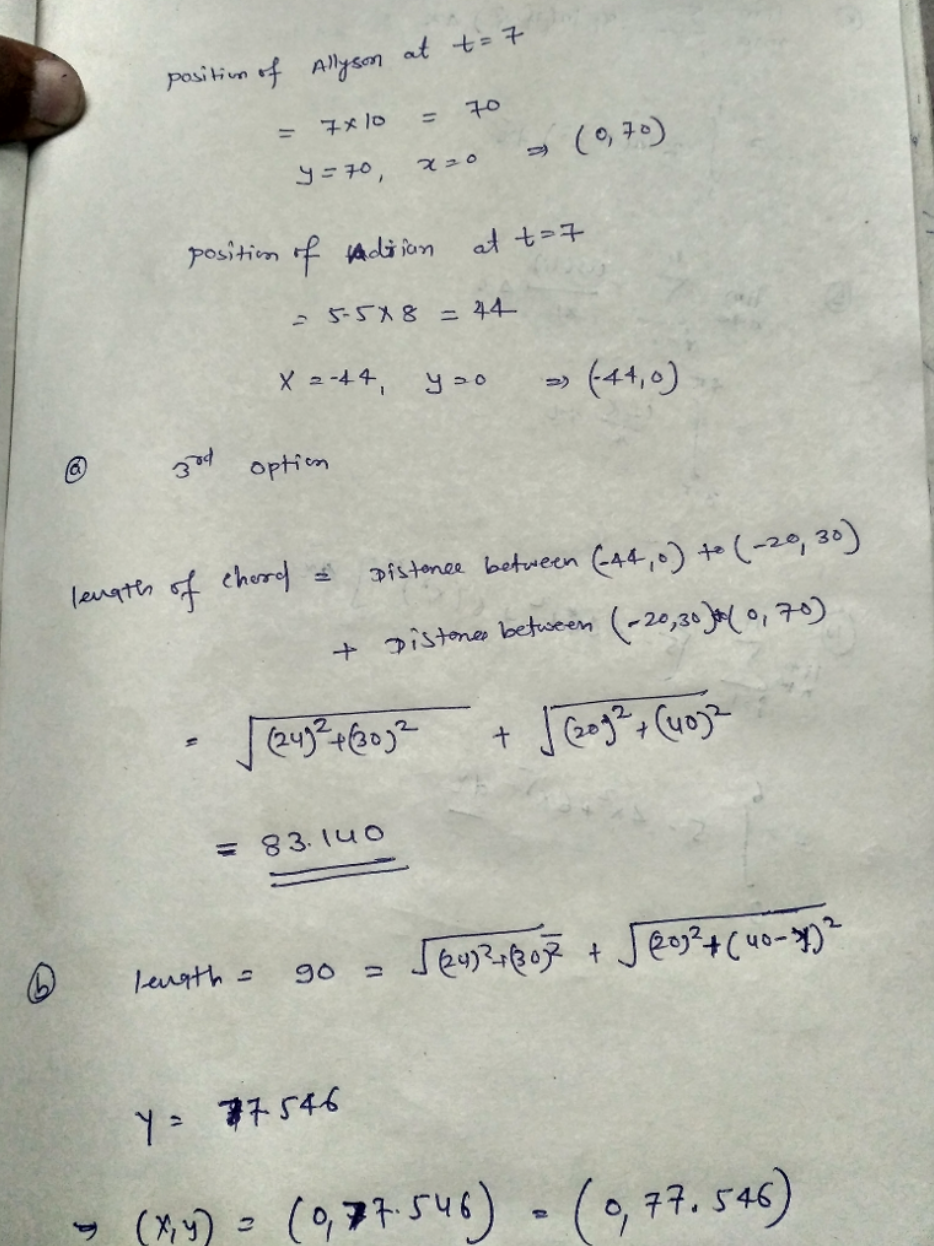 position of Allyson at t=7
= 7×10 = 70
y=70, x=0 ⇒ (0,70)
position of Adrian at t=7
= 5.5×8 = 44
x=-44, y=0 ⇒ (-44,0)
(a) 3rd option
length of chord = Distance between (-44,0) to (-20,30)
+ Distance between (-20,30) to (0,70)
= √(24)²+(30)² + √(20)²+(40)²
= 83.140
(b) length = 90 = √(24)²+(30)² + √(20)²+(40-y)²
y = 77.546
⇒ (x,y) = (0,77.546) = (0,77.546)